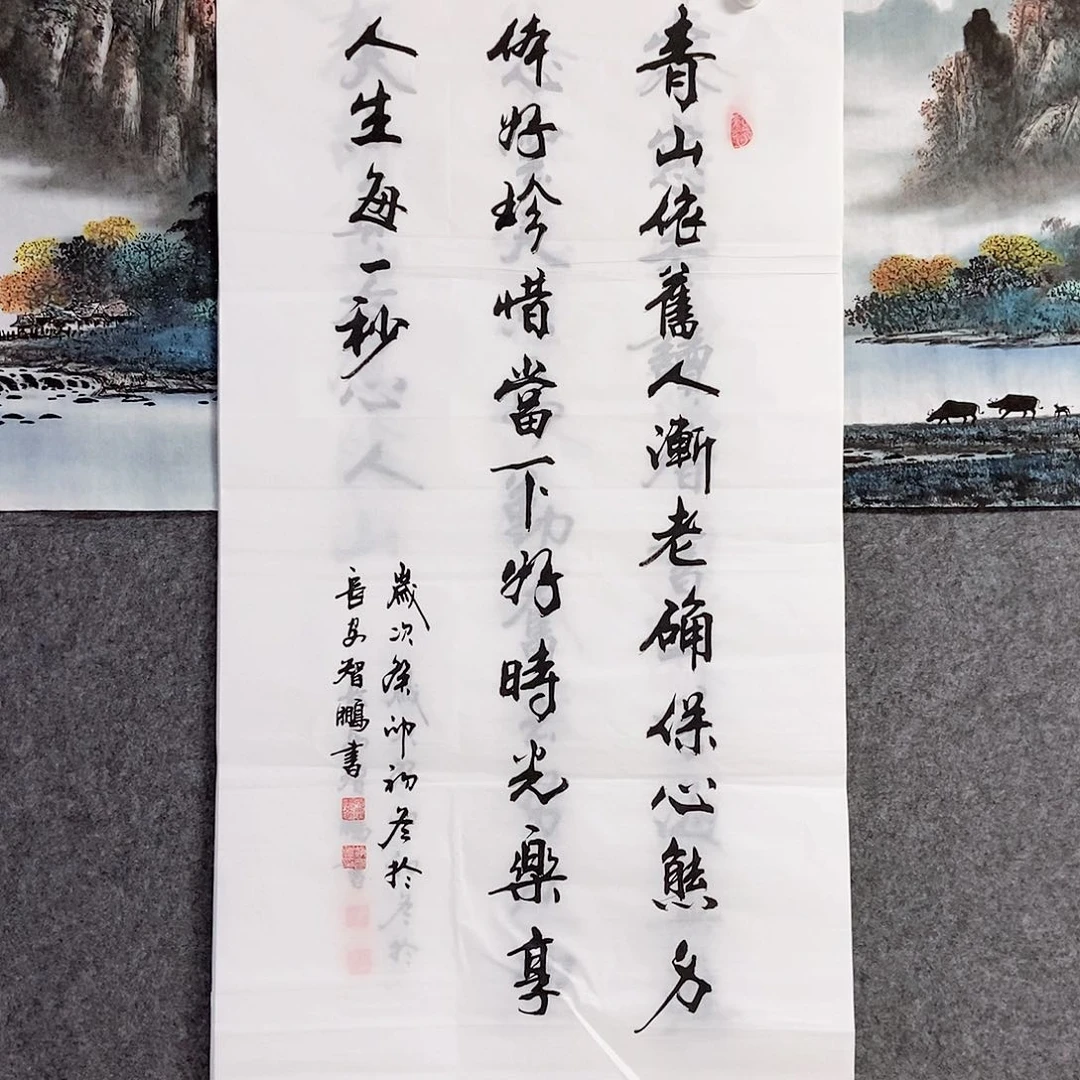 青山依舊人漸老确保心態身
体好珍惜當下好時光樂享
人生每一秒
歲次癸卯初冬於
長安智鵬書